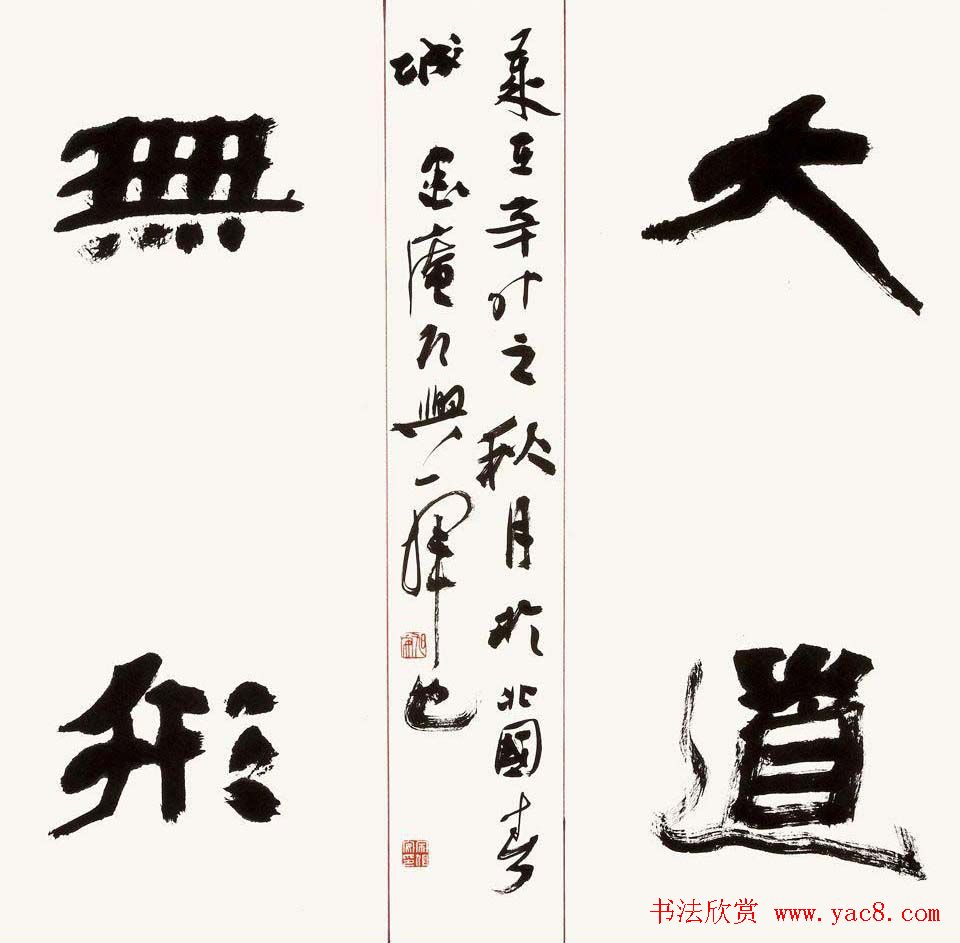 大道
無形
歲在辛卯之秋月於北國春
城 墨庵乘興一揮也
书法欣赏 www.yac8.com